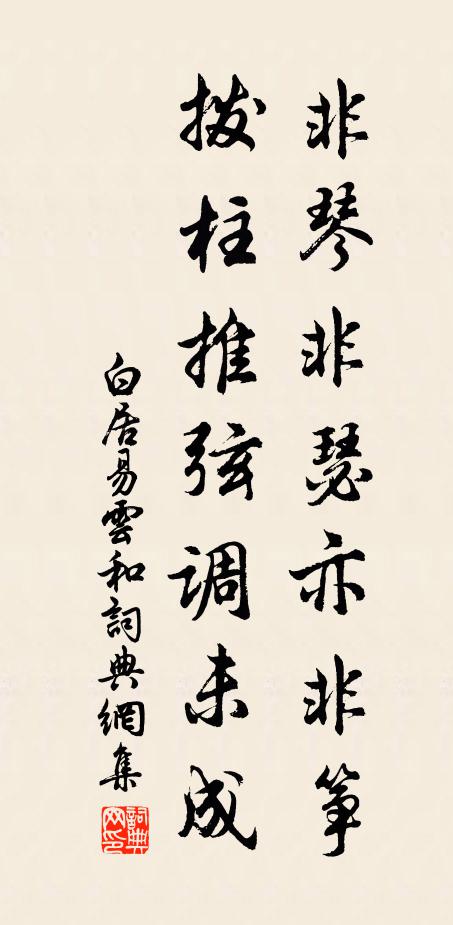 非琴非瑟亦非筝
拨柱推弦调未成
白居易雲和詞典網集
詞典網印